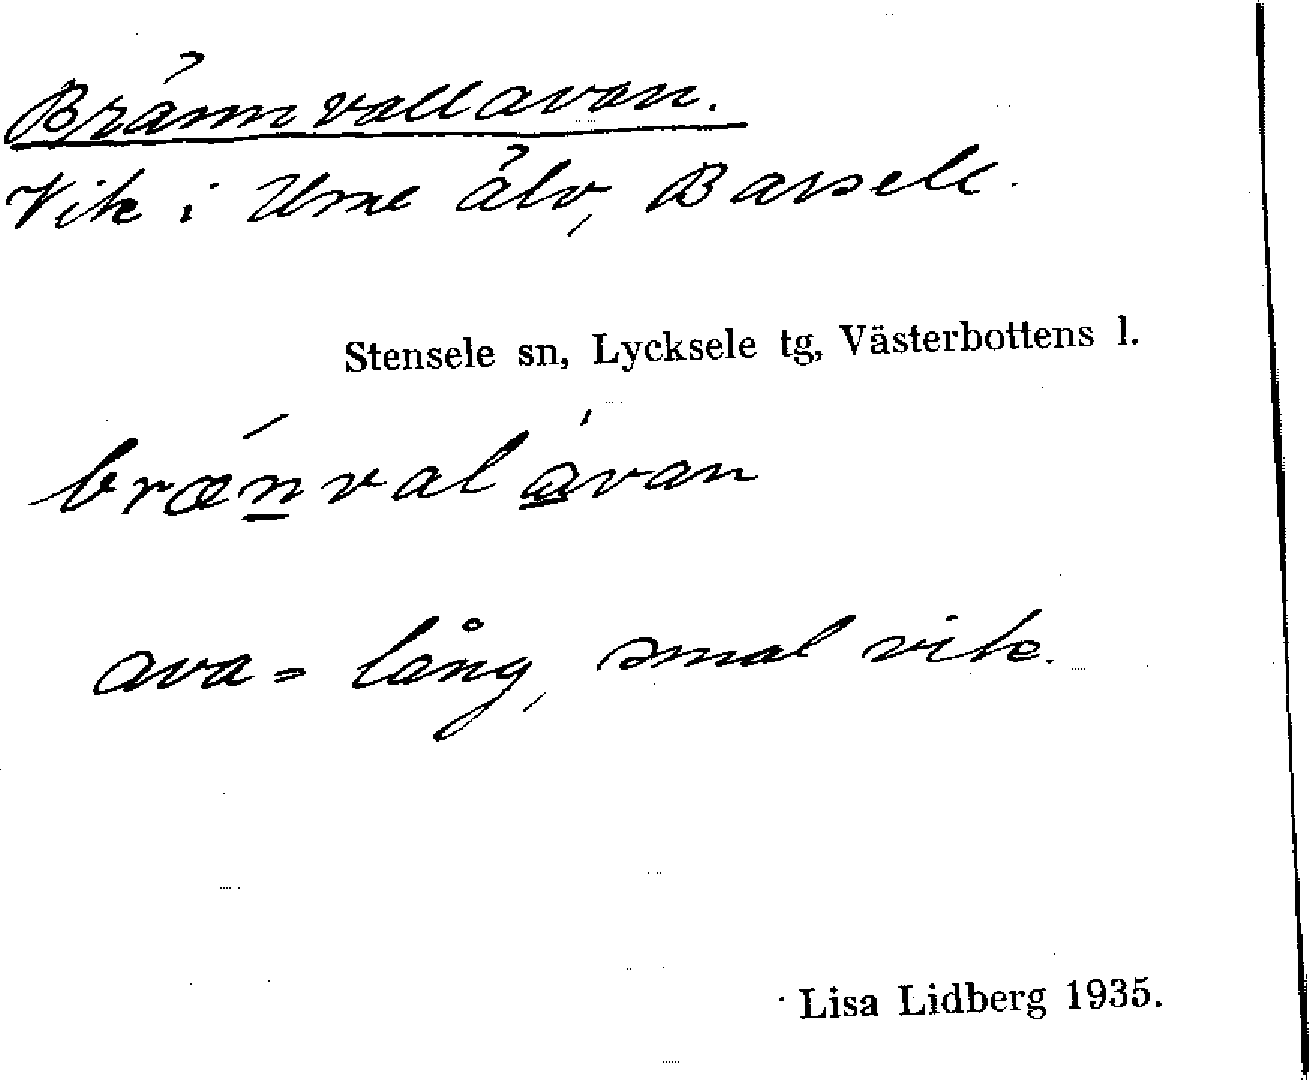 Brännvallavan.
Vik i Ume älv, Barsele.
Stensele sn, Lycksele tg, Västerbottens l.
bræ̀n̲vala̲̍van
ava = lång, smal vik.
Lisa Lidberg 1935.